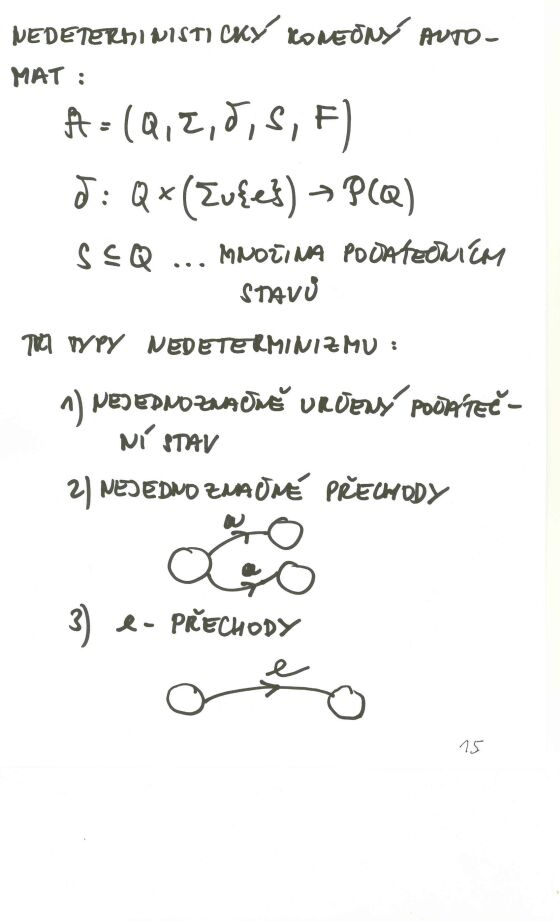 NEDETERMINISTICKÝ KONEČNÝ AUTO-
MAT :
A = (Q, Σ, δ, S, F)
δ : Q × (Σ∪{e}) → P(Q)
S ⊆ Q ... MNOŽINA POČÁTEČNÍCH
STAVŮ
TŘI TYPY NEDETERMINIZMU :
1) NEJEDNOZNAČNĚ URČENÝ POČÁTEČ-
NÍ STAV
2) NEJEDNOZNAČNÉ PŘECHODY
a
a
3) e - PŘECHODY
e
15